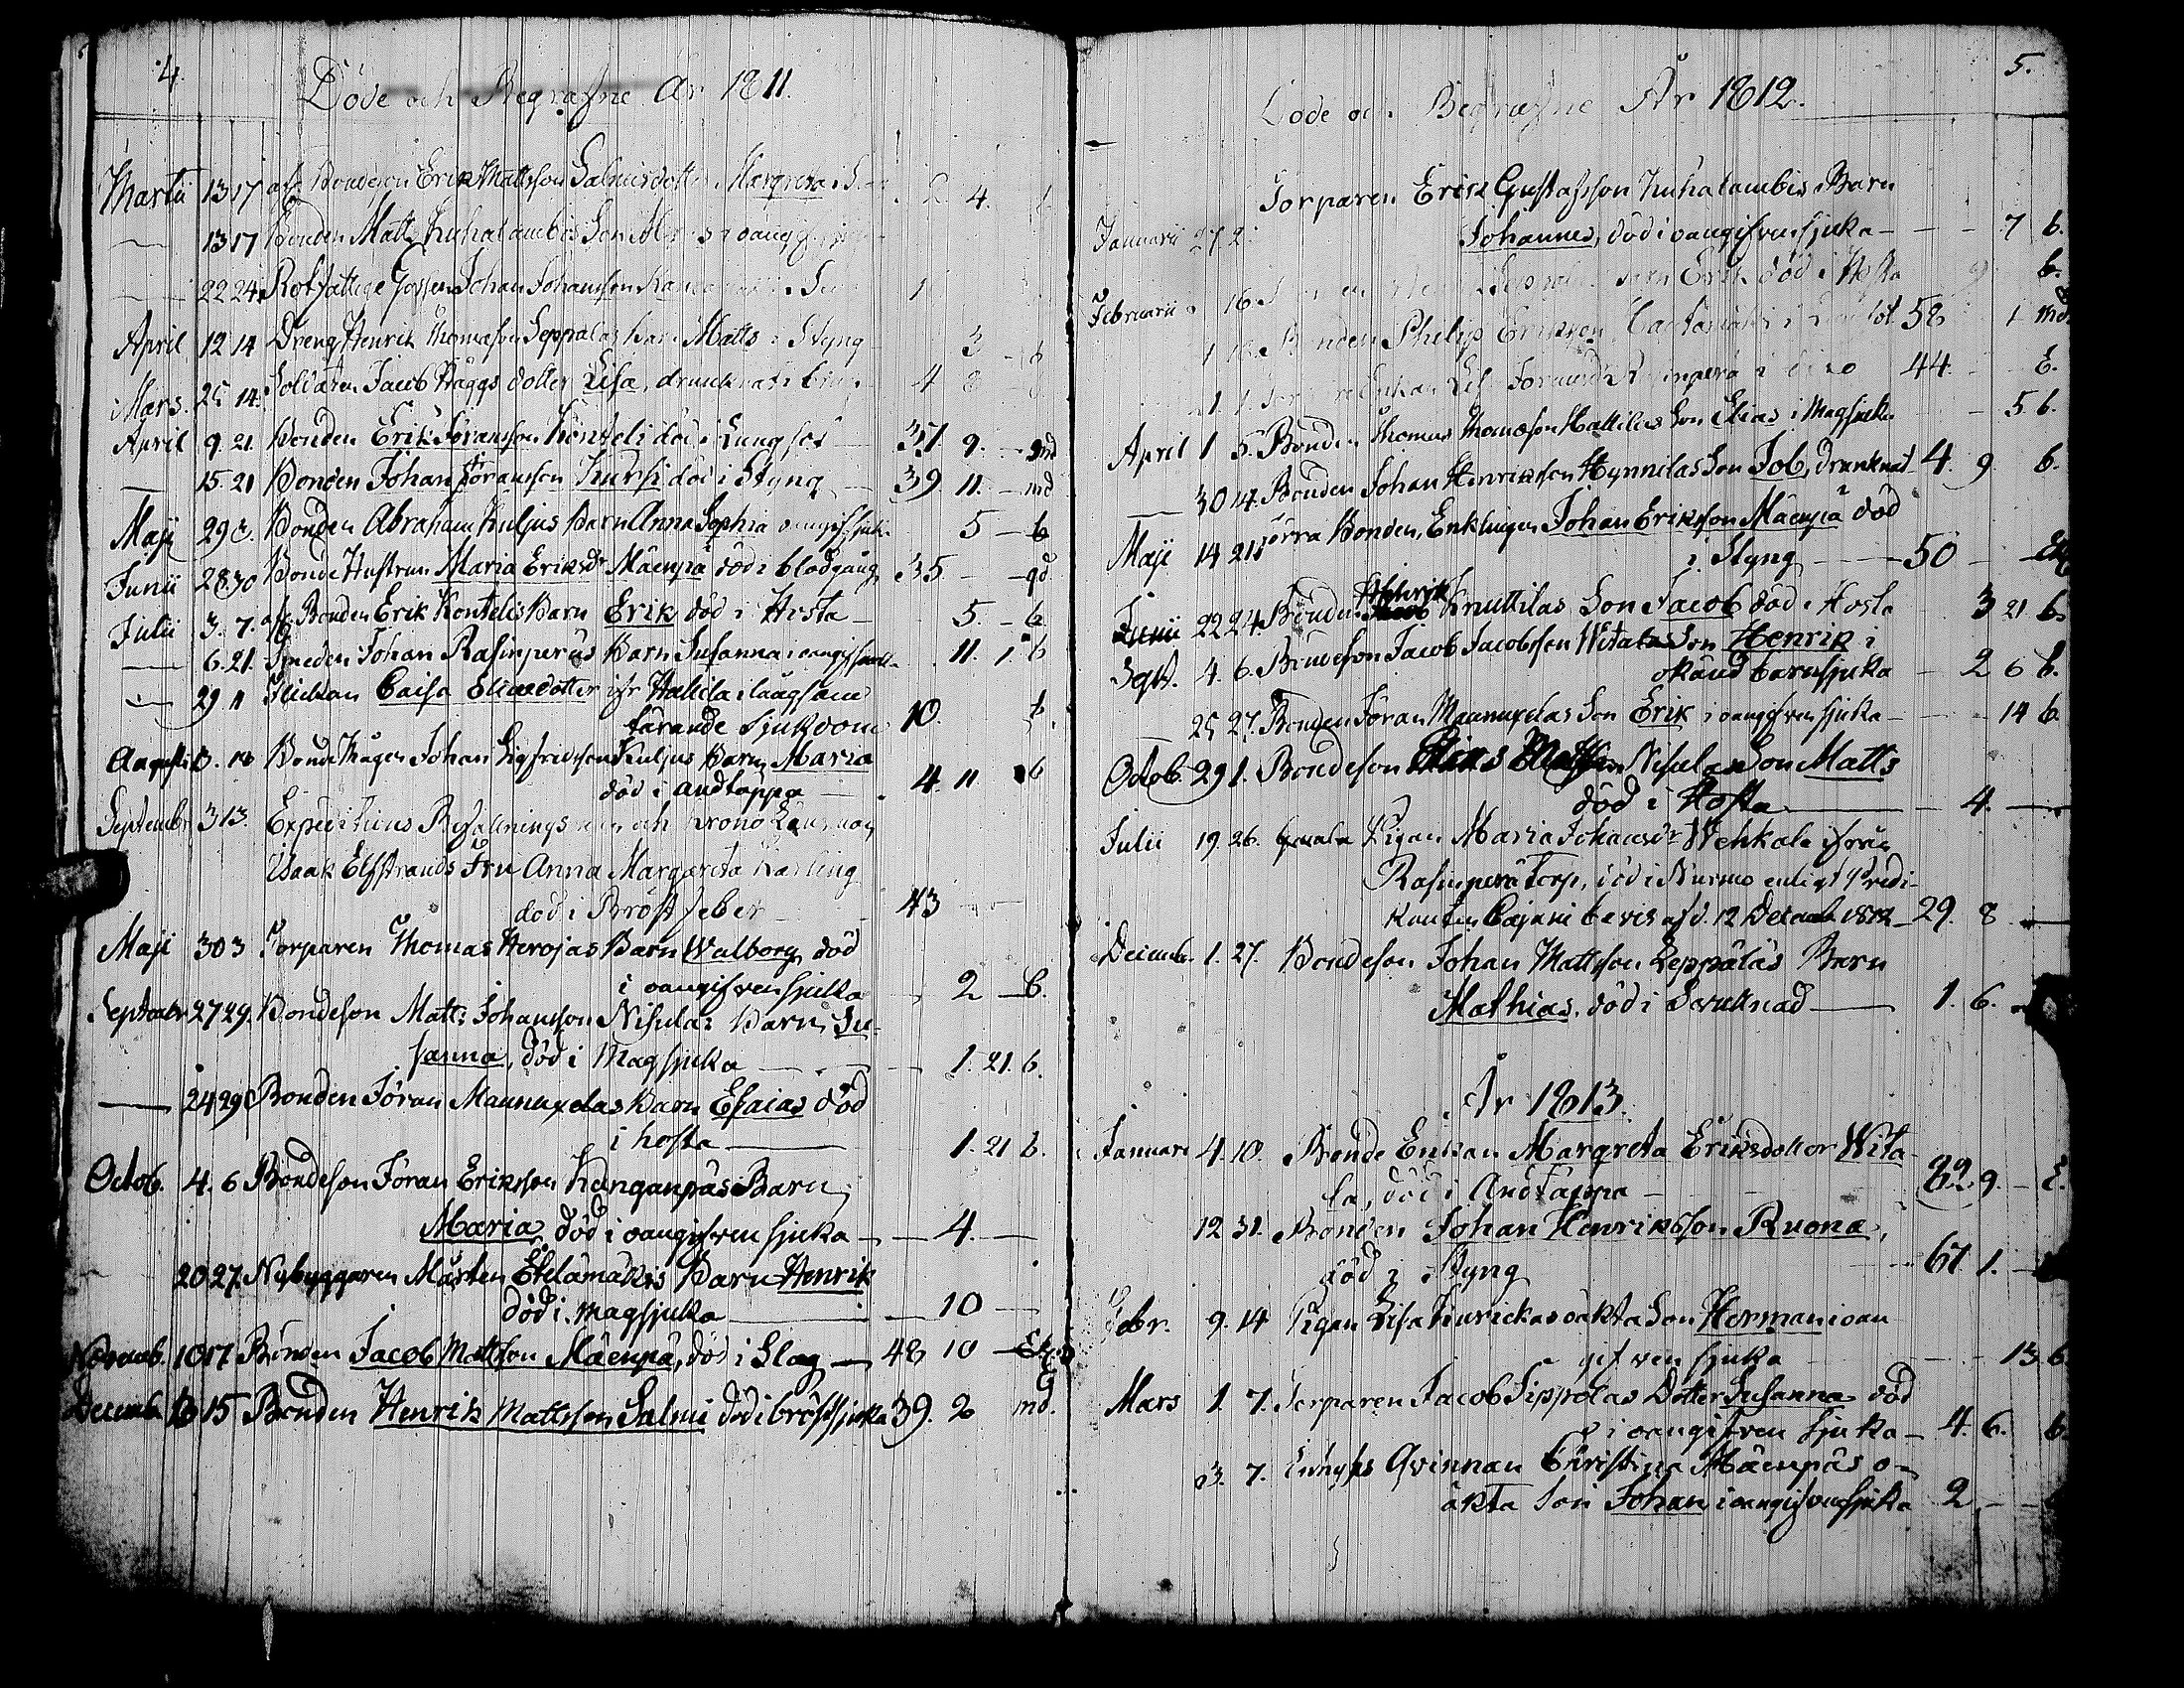 4.
Döde och Begrafne År 1811.
Martii 13 17 afl. Bondeson Erik Mattsson Salmis dotter Margreta i 2 4.
13 17 Bonden Matts Huhalambis Son i oangifven
22 24 Rotfattige Gossen Johan Johansson 1
April 12 14 Dreng Henrik Thomasson Seppäläs barn Matts i Styng 3 - b
Mars. 25 14. Soldaten Jacob Träggs dotter Lisa, drunknat 4 8
April 9. 21. Bonden Erik Föransson Könteli död i Lungsot 37. 9. - md
15. 21 Bonden Johan Föransson Kurki död i Styng 39. 11. - md
Maji 29 3. Bonden Abraham Kuljus Barn Anna Sophia oangif sjuk. 5 - b
Junii 28 30 Bonde Hustrun Maria Eriksdr Mäenpä död i blodgång 35. - gd.
Julii 3. 7. afl. Bonden Erik Köntelis Barn Erik död i Hosta - 5. - b
6. 21. Smeden Johan Rasinperäs Barn Susanna i oangif 11. 1. b
29 11 Flickan Caisa Eliaedotter ifr Hakila i långsam
tärande Sjukdom 10. b.
Augusti 13. 18 Bonde Mågen Johan Sigfredsson Kuljus Barn Maria
död i andtäppa 4. 11 b
Septembr 3 13. Expeditions Befallningsman och Krono Länsman
Isaak Elfstrands Fru Anna Margareta Karling
död i Bröst feber 43
Maji 30 3 Torparen Thomas Herojas Barn Walborg död
i oangifven sjuka 2 - b.
Septembr 27 29. Bondeson Matts Johansson Nisulas Barn Su-
sanna, död i Magsjuka 1. 21. b.
24 29 Bonden Jöran Maunuxelas Barn Esaias död
i hosta 1. 21 b.
Octob. 4. 6 Bondeson Jöran Eriksson Kanganpäs Barn
Maria, död i oangifven sjuka - 4. -
20 27. Nybyggaren Mårten Etelämäkis Barn Henrik
död i magsjuka 10 -
Novemb. 10 17 Bonden Jacob Mattsson Mäenpä, död i Slag - 48 10 - Ekl.
Decemb. 13 15 Bonden Henrik Mattsson Salmi död i bröstsjuka 39. 2 md.
5.
Döde och Begrafne År 1812.
Torparen Erik Gustafsson Huhalambis Barn
Januarii 27 2. Johannes, död i oangifven sjuka - 7 b.
Februarii 16. barn Erik död i Hosta 9. b.
Bonden Philip Eriksson i Lungsot 58 1 md.
Enkan 44. - E.
April 1 5. Bonden Thomas Thomasson Hattilas Son Elias i Magsjuka - 5 b.
30 14. Bonden Johan Henriksson Hynnilas Son Job, drunknat 4. 9 b.
Maji 14 21 förra Bonden, Enklingen Johan Eriksson Mäenpä död
i Styng 50 -
Junii 22 24. Bonden Knuttilas Son Jacob död i Hosta 3 21 b.
Sept. 4. 6. Bondeson Jacob Jacobsson Witalas Son Henrik i
okänd barnsjuka - 2 6 b.
25 27. Bonden Jöran Maunuxelas Son Erik i oangifven sjuka - 14 b.
Octob. 29 1. Bondeson Nisulas Son Matts
död i Hosta - 4. -
Julii 19. 26. Pigan Maria Johansdr Wehkala ifrån
Rasinperä Torp, död i Nurmo enligt Predi-
kanten Cajani bevis af d. 12 Decemb. 1812 - 29. 8 -
Decemb. 1. 27. Bondeson Johan Mattsson Leppäläs Barn
Mathias, död i Scruknad 1. 6.
År 1813.
Januari 4. 10. Bonde Enkan Margreta Eriksdotter Wita-
la, död i Andtäppa - 82 9. - E.
12 31. Bonden Johan Henriksson Ruona,
död i Styng 67 1. -
Febr. 9. 14 Pigan Lisa Kurickas oäkta Son Herman i oan
gifven sjuka 13 b.
Mars 1. 7. Torparen Jacob Sippolas Dotter Susanna död
i oangifven sjuka - 4. 6. b.
3. 7. Qvinnan Christina Mäenpäs o-
äkta Son Johan i oangifven sjuka 2 -